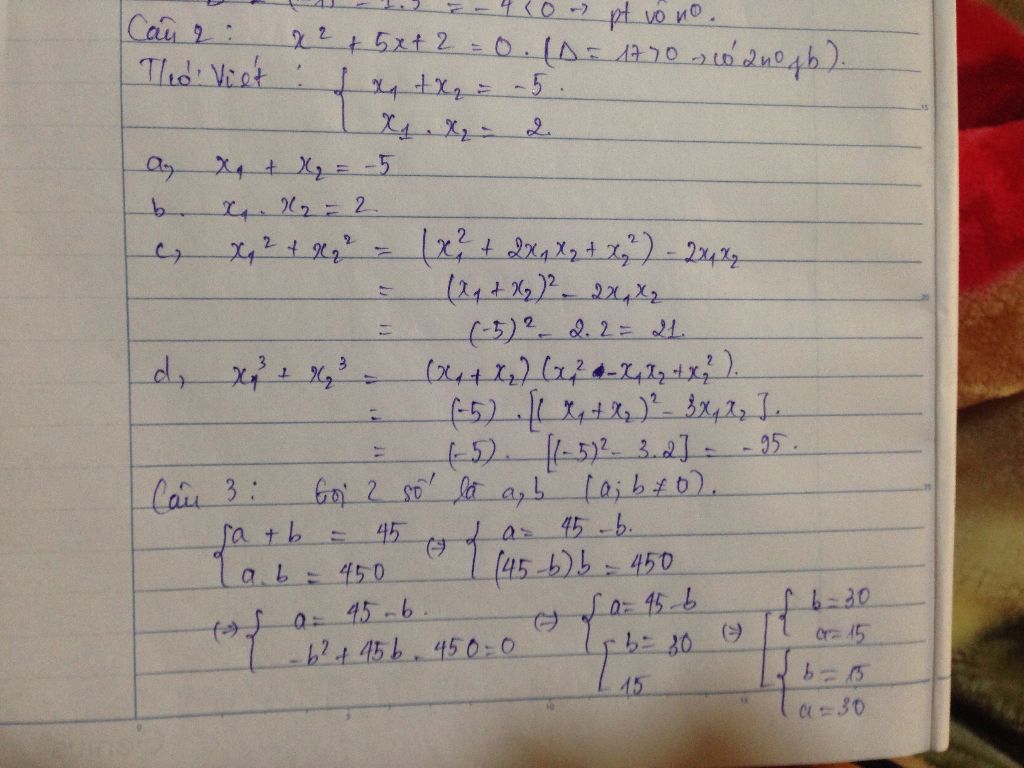 (-1) = 1.5 = - 4 < 0 → pt vô n⁰.
Câu 2 : x² + 5x + 2 = 0. (Δ = 17 > 0 → có 2 n⁰ pb).
Theo Viet : { x₁ + x₂ = -5.
x₁ . x₂ = 2.
a, x₁ + x₂ = -5
b. x₁ . x₂ = 2.
c, x₁² + x₂² = (x₁² + 2x₁x₂ + x₂²) - 2x₁x₂
= (x₁ + x₂)² - 2x₁x₂
= (-5)² - 2.2 = 21.
d, x₁³ + x₂³ = (x₁ + x₂) (x₁² - x₁x₂ + x₂²).
= (-5) . [( x₁ + x₂)² - 3x₁x₂ ].
= (-5) . [(-5)² - 3.2] = - 95.
Câu 3 : Gọi 2 số là a, b (a; b ≠ 0).
{ a + b = 45 (=) { a = 45 - b.
a.b = 450 (45 - b)b = 450
(=) { a = 45 - b. (=) { a = 45 - b (=) [ { b = 30
-b² + 45b - 450 = 0 [ b = 30 a = 15
15 { b = 15
a = 30